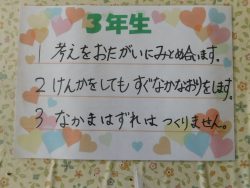 3年生
1 考えをおたがいにみとめ合います。
2 けんかをしても すぐなかなおりをします。
3 なかまはずれは つくりません。